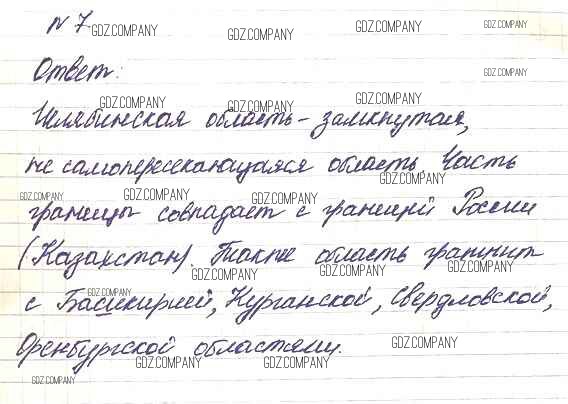 N 7. GDZ.COMPANY GDZ.COMPANY GDZ.COMPANY GDZ.COMPANY
Ответ: GDZ.COMPANY
GDZ.COMPANY GDZ.COMPANY GDZ.COMPANY
Челябинская область - замкнутая,
не самопересекающаяся область. Часть
GDZ.COMPANY GDZ.COMPANY GDZ.COMPANY GDZ.COMPANY
границы совпадает с границей России
(Казахстан). Также область граничит
GDZ.COMPANY GDZ.COMPANY GDZ.COMPANY
GDZ.COMPANY
с Башкирией, Курганской, Свердловской,
Оренбургской областями. GDZ.COMPANY
GDZ.COMPANY GDZ.COMPANY
GDZ.COMPANY